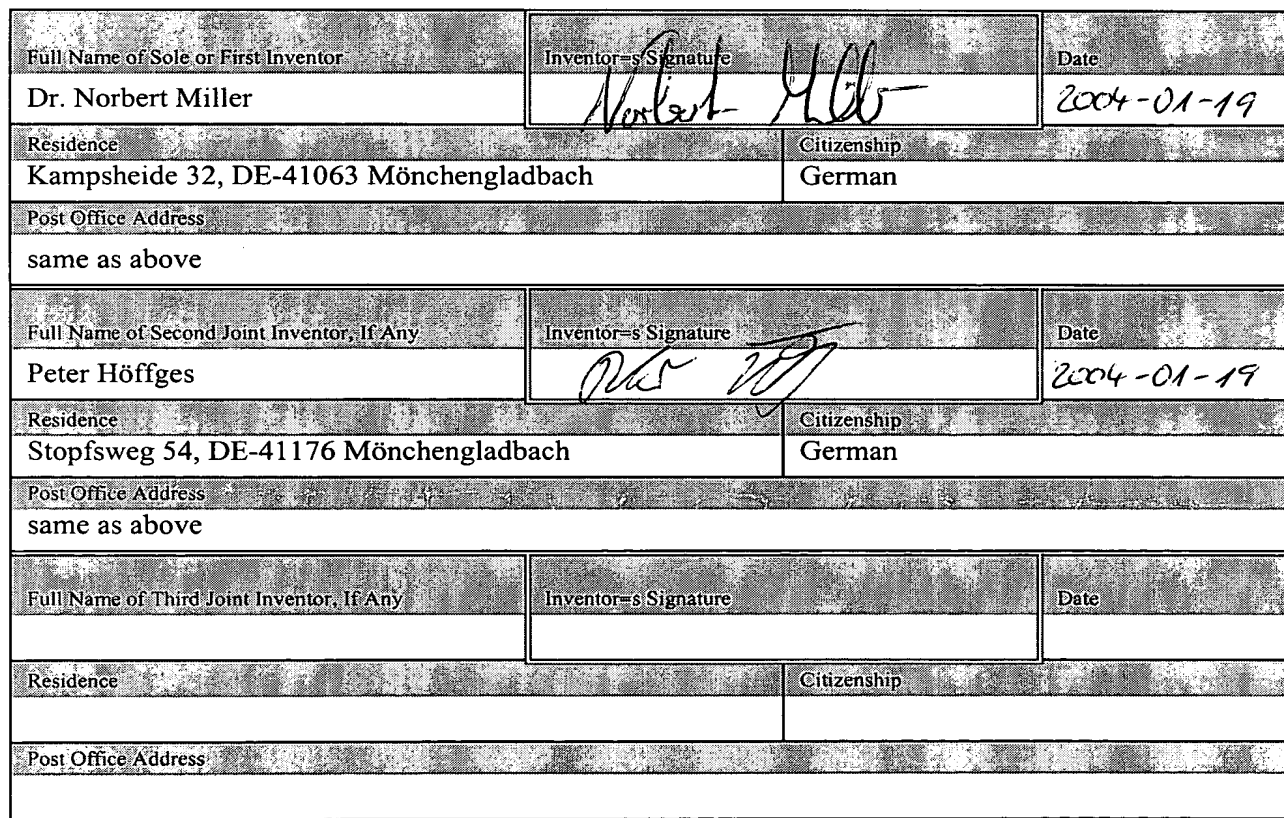 Full Name of Sole or First Inventor Inventor=s Signature Date
Dr. Norbert Miller Norbert Miller 2004-01-19
Residence Citizenship
Kampsheide 32, DE-41063 Mönchengladbach German
Post Office Address
same as above
Full Name of Second Joint Inventor, If Any Inventor=s Signature Date
Peter Höffges 2004-01-19
Residence Citizenship
Stopfsweg 54, DE-41176 Mönchengladbach German
Post Office Address
same as above
Full Name of Third Joint Inventor, If Any Inventor=s Signature Date
Residence Citizenship
Post Office Address